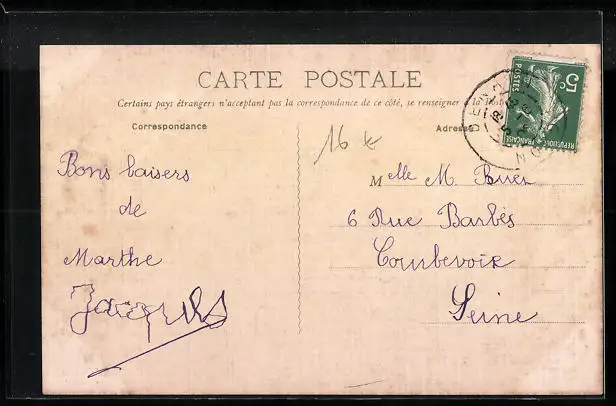 CARTE POSTALE
Certains pays étrangers n'acceptent pas la correspondance de ce côté, se renseigner à la Poste
Correspondance
Adresse
16 €
Bons baisers
de
Marthe
Jacques
Mlle M. Buer
6 Rue Barbès
Courbevoie
Seine
5c
POSTES
REPUBLIQUE FRANÇAISE